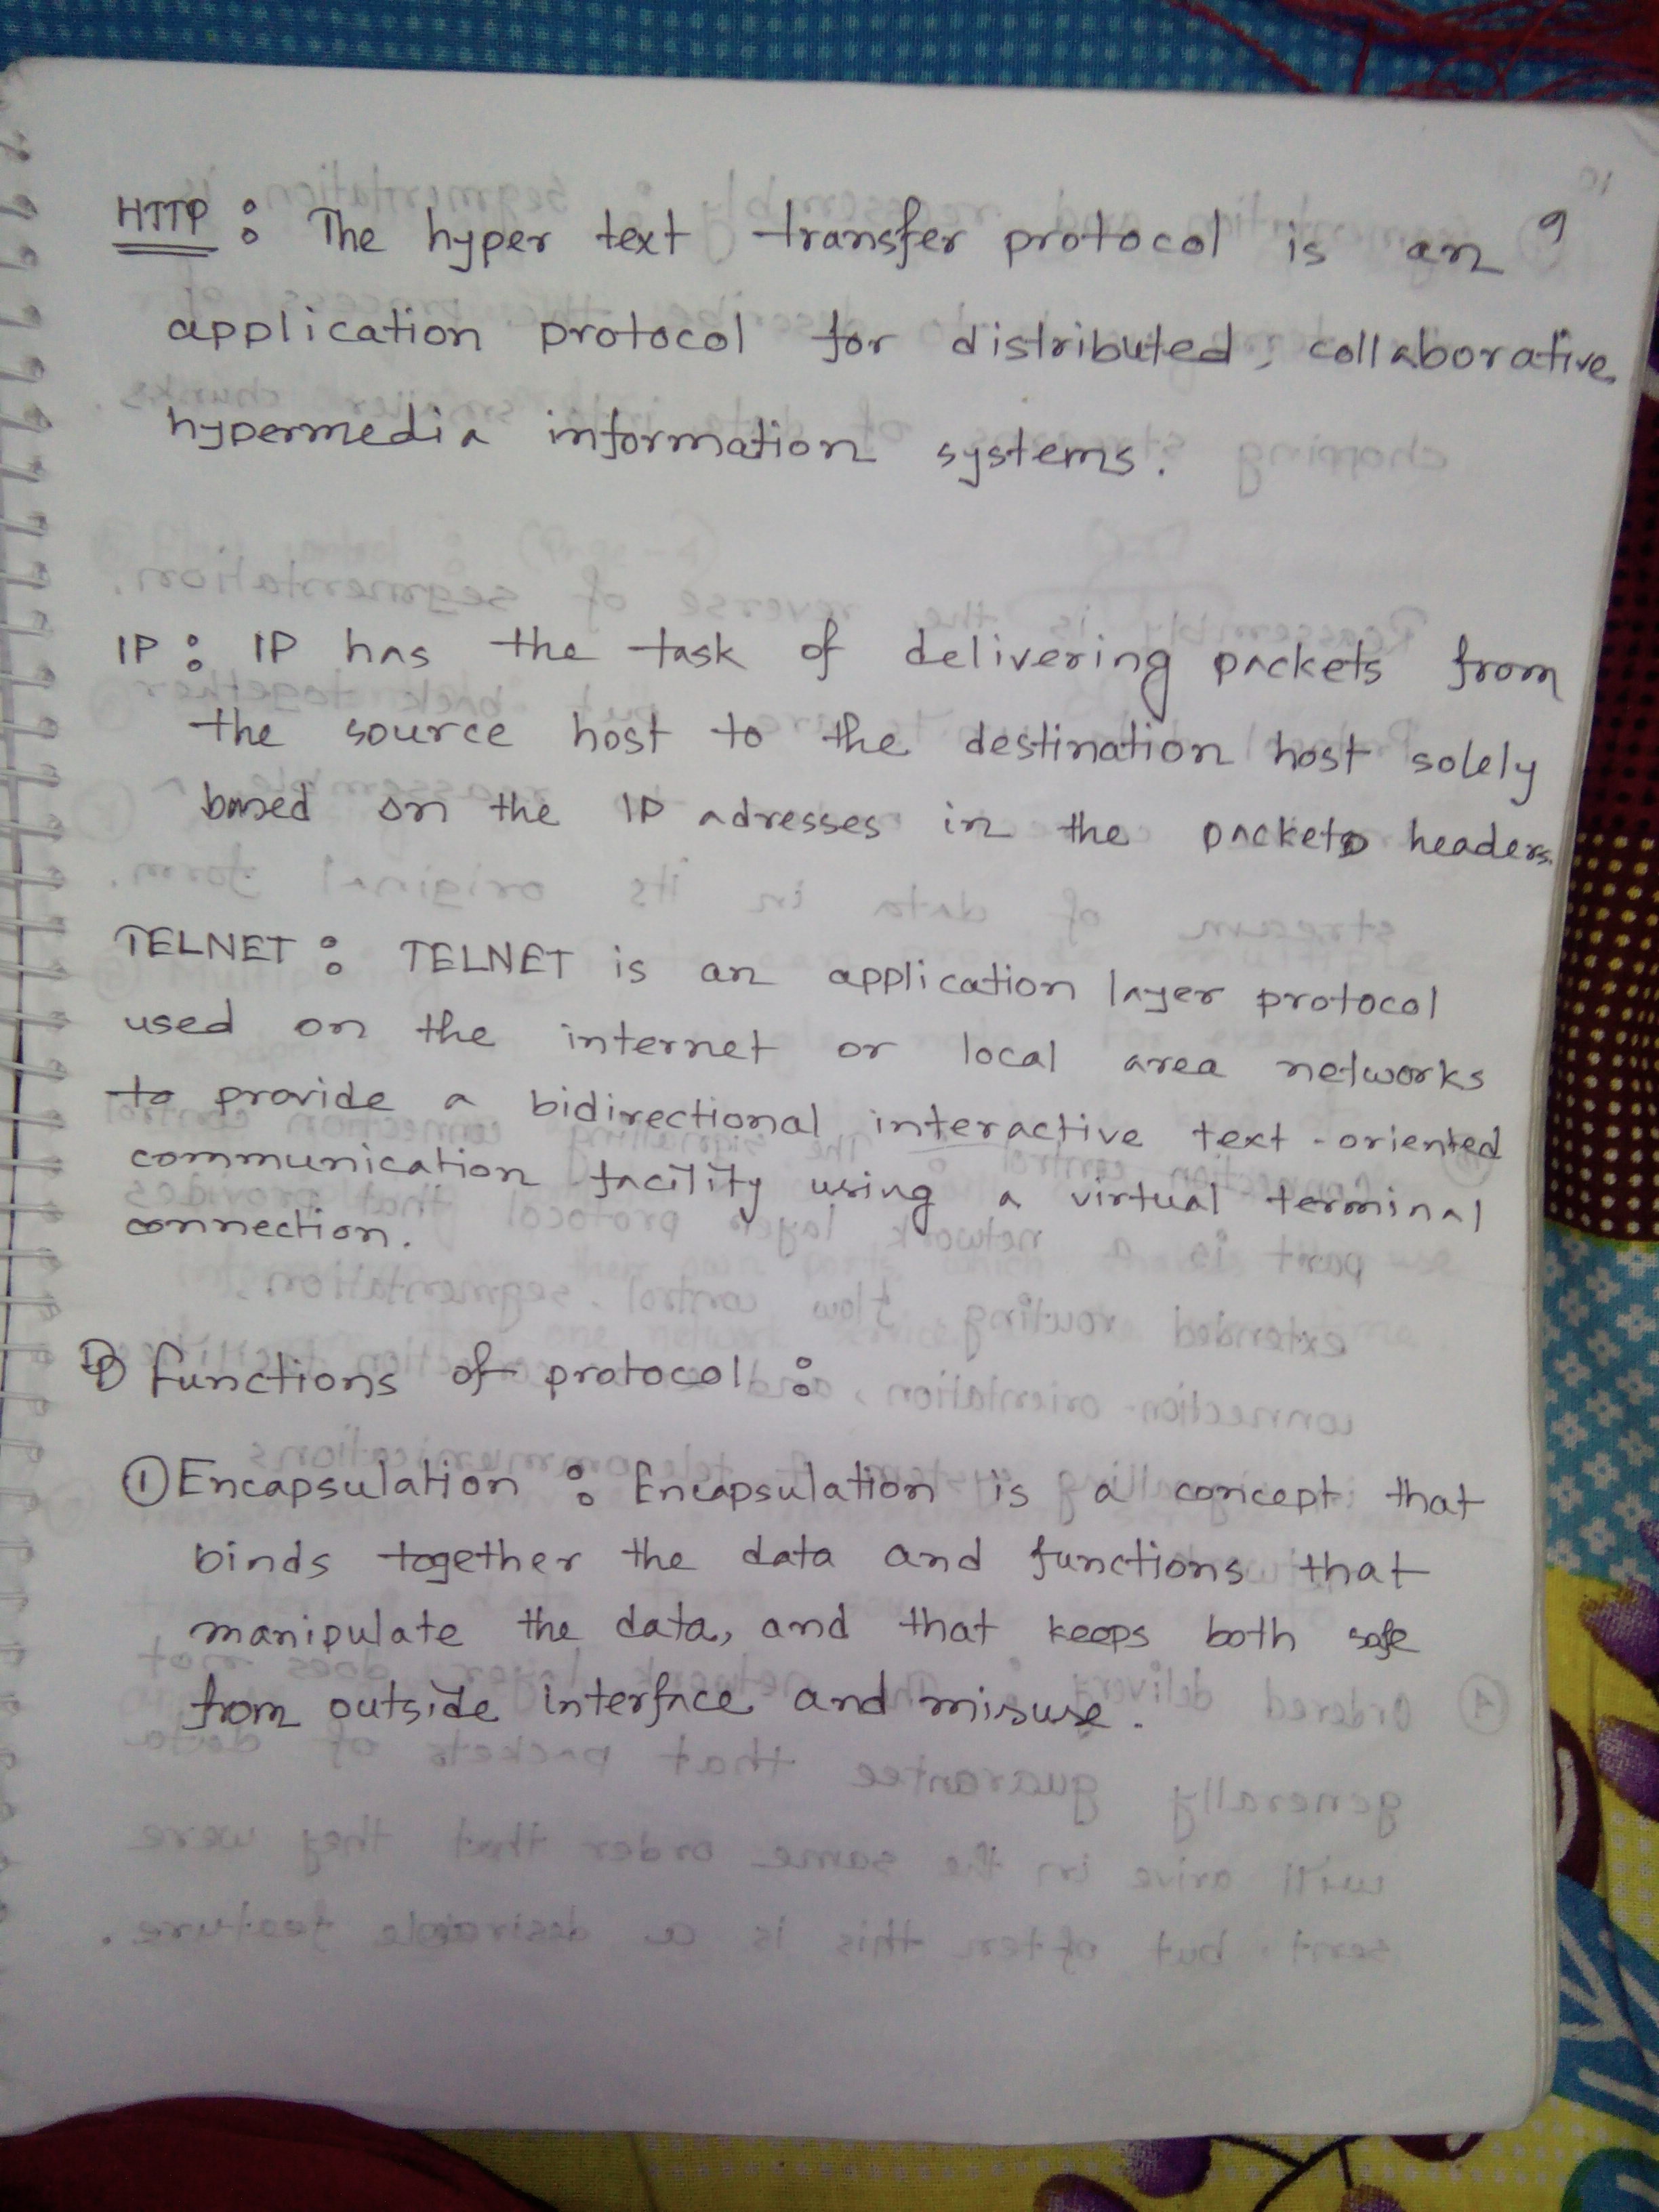 9
HTTP : The hyper text transfer protocol is an
application protocol for distributed, collaborative
hypermedia information systems.
IP : IP has the task of delivering packets from
the source host to the destination host solely
based on the IP adresses in the packets headers.
TELNET : TELNET is an application layer protocol
used on the internet or local area networks
to provide a bidirectional interactive text-oriented
communication facility using a virtual terminal
connection.
functions of protocol :
① Encapsulation : Encapsulation is a concept that
binds together the data and functions that
manipulate the data, and that keeps both safe
from outside interface and misuse.